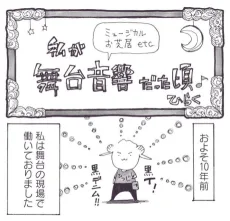 ミュージカル
お芝居 etc
私が
舞台音響だった頃♪
ひらく
およそ10年前
黒T!
黒デニム!!
私は舞台の現場で
働いておりました